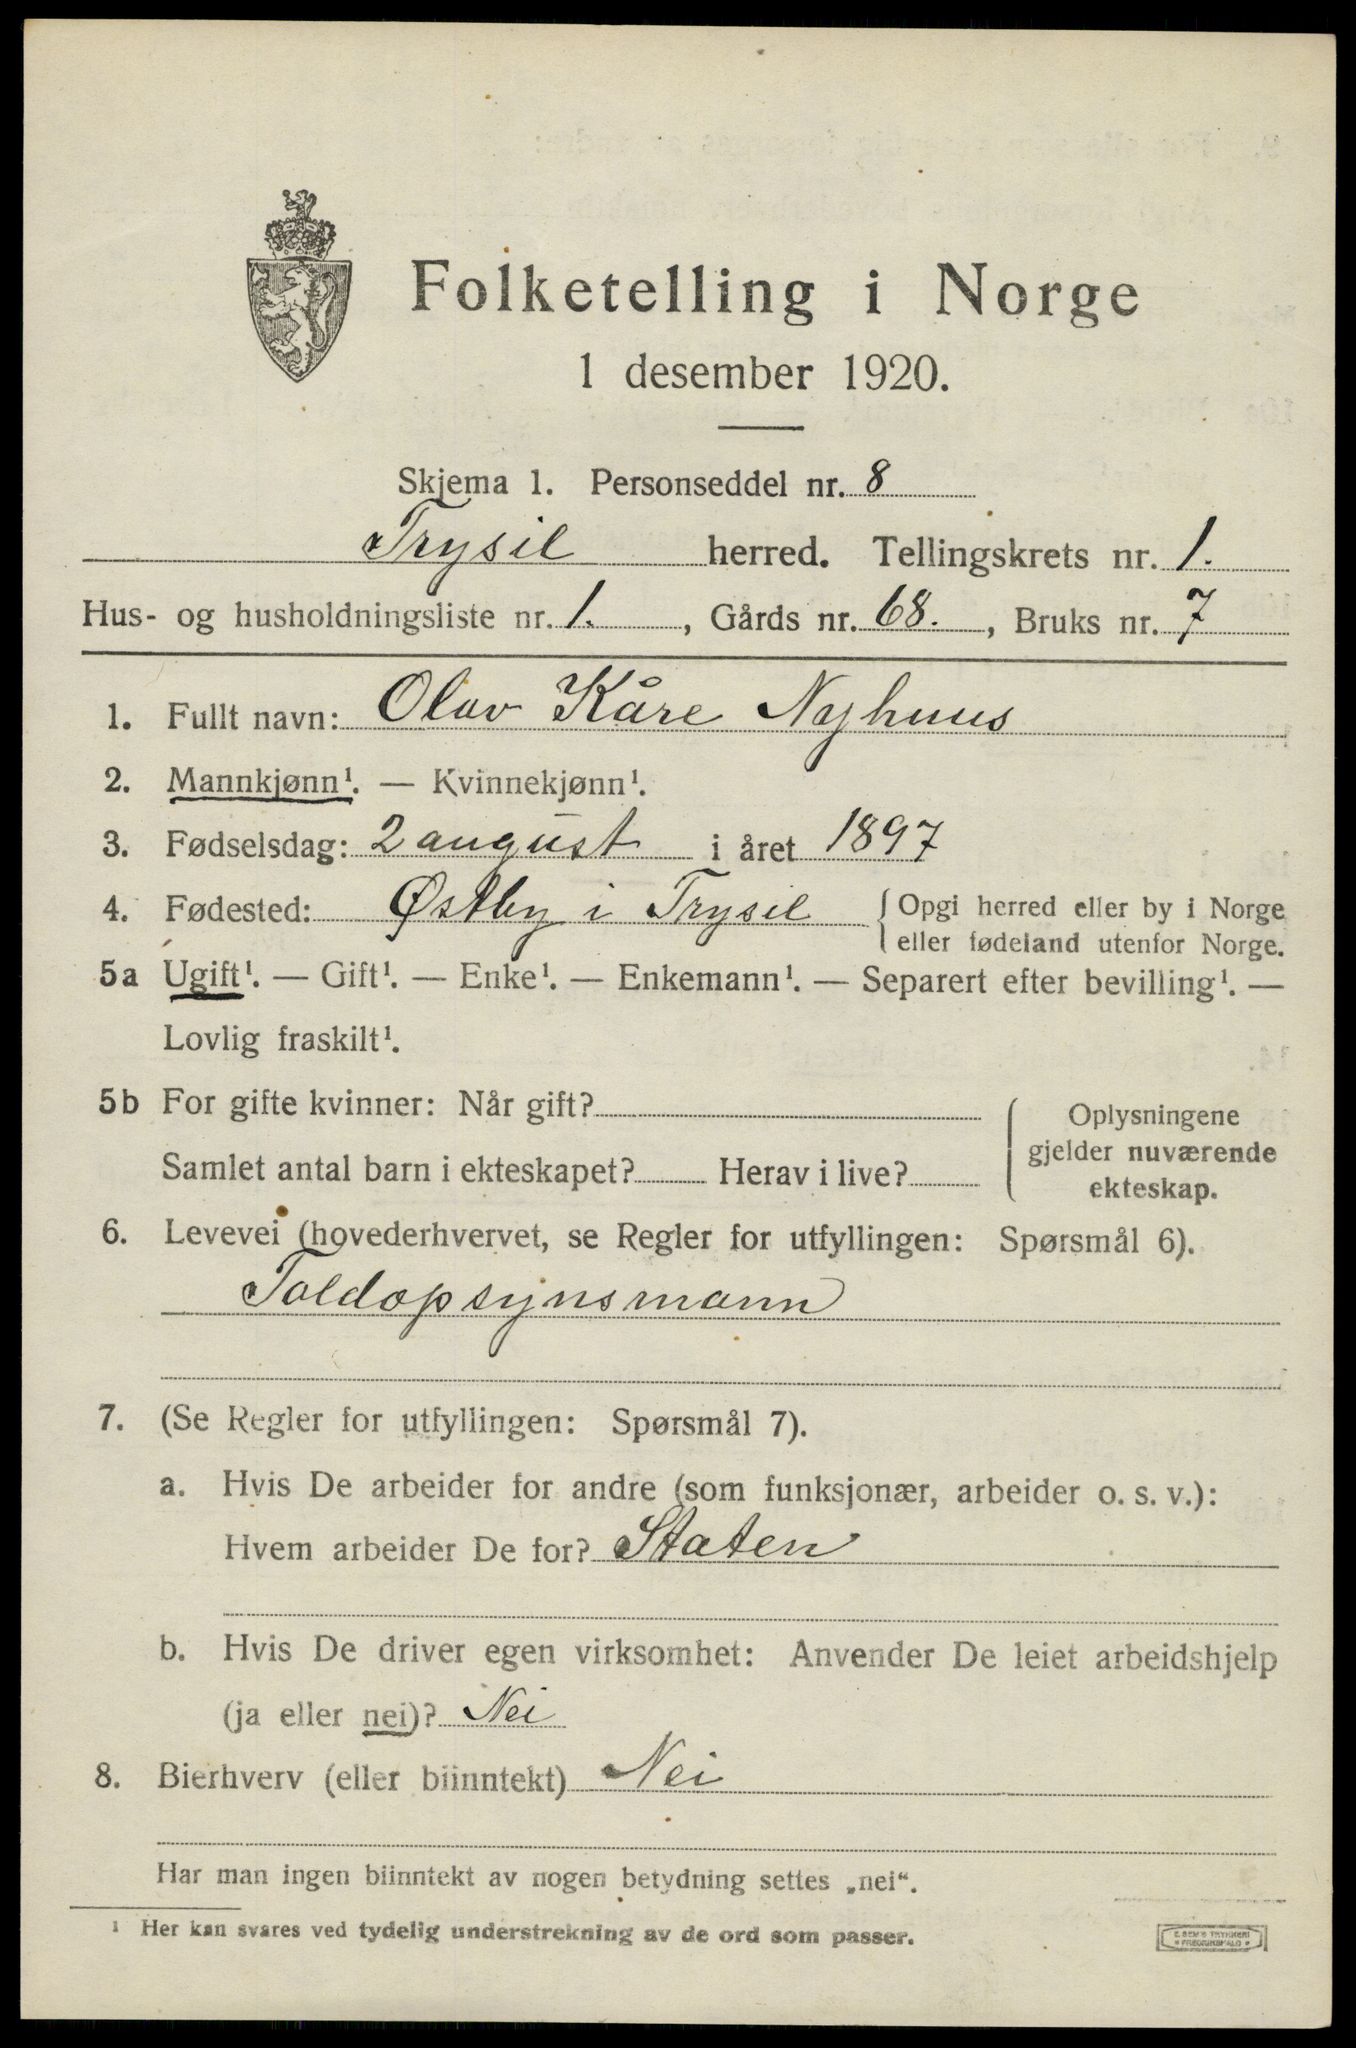 Folketelling i Norge
1 desember 1920.
Skjema 1. Personseddel nr. 8
Trysil herred. Tellingskrets nr. 1.
Hus- og husholdningsliste nr. 1. , Gårds nr. 68. , Bruks nr. 7
1. Fullt navn: Olav Kåre Nyhuus
2. Mannkjønn¹. — Kvinnekjønn¹.
3. Fødselsdag: 2 august i året 1897
4. Fødested: Østby i Trysil { Opgi herred eller by i Norge
eller fødeland utenfor Norge.
5a Ugift¹. — Gift¹. — Enke¹. — Enkemann¹. — Separert efter bevilling¹. —
Lovlig fraskilt¹.
5b For gifte kvinner: Når gift?
Samlet antal barn i ekteskapet? Herav i live?
Oplysningene
gjelder nuværende
ekteskap.
6. Levevei (hovederhvervet, se Regler for utfyllingen: Spørsmål 6).
Toldopsynsmann
7. (Se Regler for utfyllingen: Spørsmål 7).
a. Hvis De arbeider for andre (som funksjonær, arbeider o. s. v.):
Hvem arbeider De for? Staten
b. Hvis De driver egen virksomhet: Anvender De leiet arbeidshjelp
(ja eller nei)? Nei
8. Bierhverv (eller biinntekt) Nei
Har man ingen biinntekt av nogen betydning settes „nei“.
¹ Her kan svares ved tydelig understrekning av de ord som passer.
E. SEM'S TRYKKERI
FREDRIKSHALD